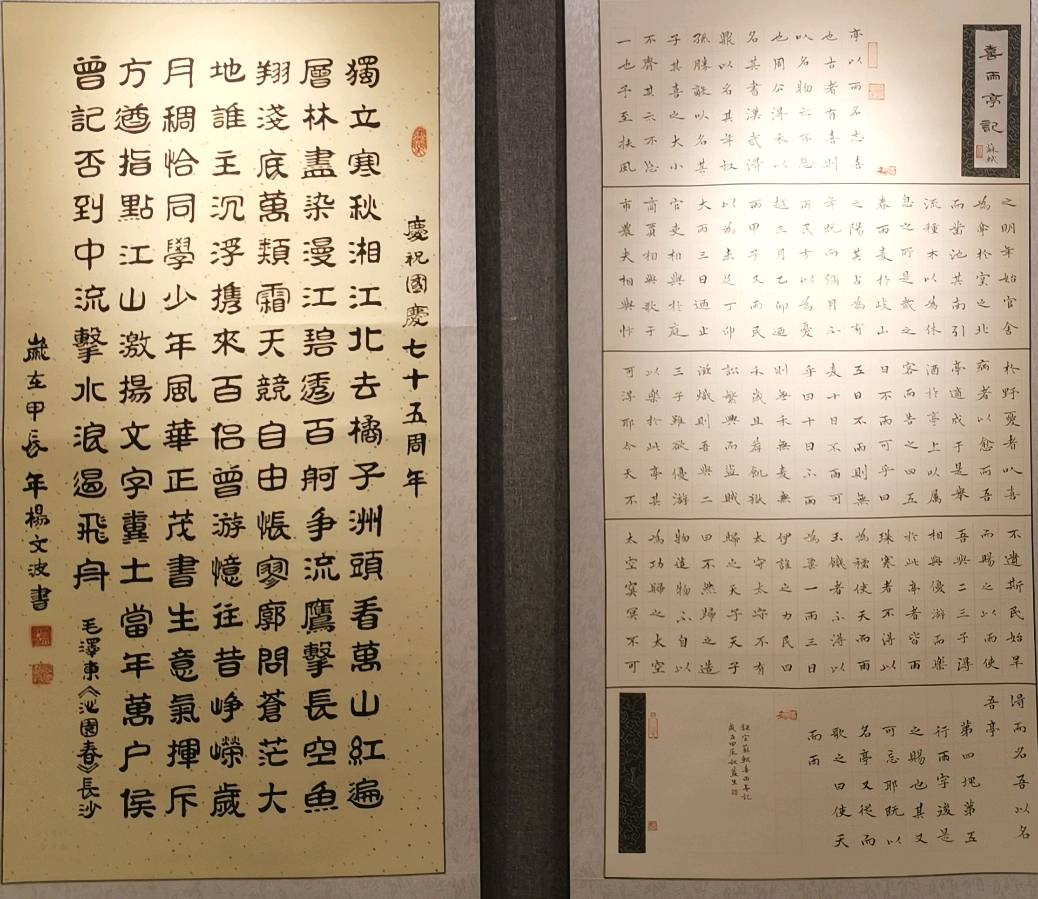 慶祝國慶七十五周年
獨立寒秋湘江北去橘子洲頭看萬山紅遍
層林盡染漫江碧透百舸争流鷹擊長空魚
翔淺底萬類霜天競自由悵寥廓問蒼茫大
地誰主沉浮携來百侣曾游憶往昔崢嶸歲
月稠恰同學少年風華正茂書生意氣揮斥
方遒指點江山激揚文字糞土當年萬户侯
曾記否到中流擊水浪遏飛舟
毛澤東《沁園春》長沙
歲在甲辰年楊文波書
喜雨亭記
蘇軾
亭以雨名志喜
也古者有喜則
以名物示不忘
也周公得禾以
名其書漢武得
鼎以名其年叔
孫勝敵以名其
子其喜之大小
不齊其示不忘
一也予至扶風
之明年始官舍
為亭於堂之北
而鑿池其南引
流種木以為休
息之所是歲之
春雨麦於岐山
之陽其占為有
年既而彌月不
雨民方以為憂
越三月乙卯迺
雨甲子又雨民
以為未足丁卯
大雨三日迺止
官吏相與於庭
商賈相與歌于
市農夫相與忭
於野憂者以喜
病者以愈而吾
亭適成于是舉
酒於亭上以属
客而告之曰五
日不雨可乎曰
五日不雨則無
麦十日不雨可
乎曰十日不雨
則無禾無麦無
禾歲且荐飢獄
訟繁興而盜賊
滋熾則吾與二
三子雖欲優游
以樂於此亭其
可得耶今天不
不遺斯民始旱
而賜之以雨使
吾與二三子得
相與優游而樂
於此亭者皆雨
珠寒者不得以
為襦使天而雨
玉饑者不得以
為粟一雨三日
伊誰之力民曰
太守太守不有
歸之天子天子
曰不然歸之造
物造物不自以
為功歸之太空
太空冥冥不可
得而名吾以名
吾亭
第四塊第五
行雨字後是
之賜也其又
可忘耶既以
名亭又從而
歌之曰使天
而雨
錄宋蘇軾喜雨亭記
歲在甲辰秋